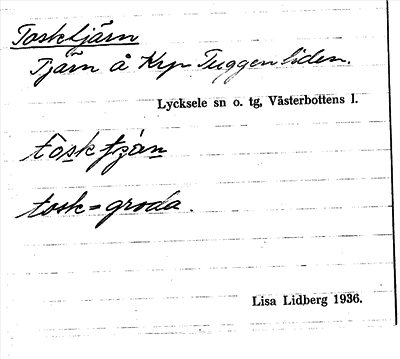 Tosktjärn
Tjärn å Krp Tuggenliden.
Lycksele sn o. tg, Västerbottens l.
tosktjän
tosk = groda.
Lisa Lidberg 1936.